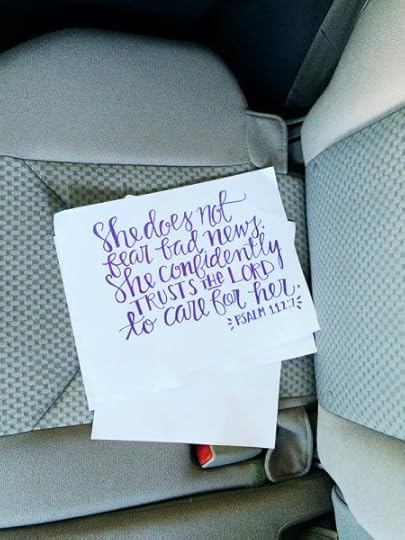 She does not
fear bad news.
She confidently
TRUSTS THE LORD
to care for her.
PSALM 112:7